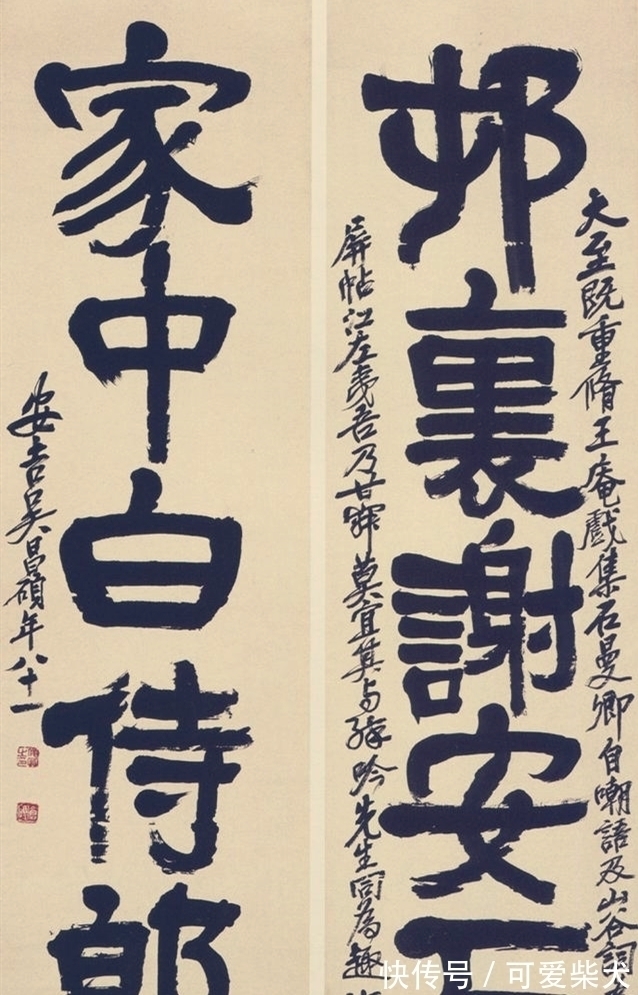 大至既重脩王庵戲集石曼卿自嘲語及山谷詞
邨裏謝安
屏帖江左夷吾乃甘莫宜其与吟先生同為趣
家中白侍郎
安吉吴昌碩年八十一
快传号/可爱柴犬